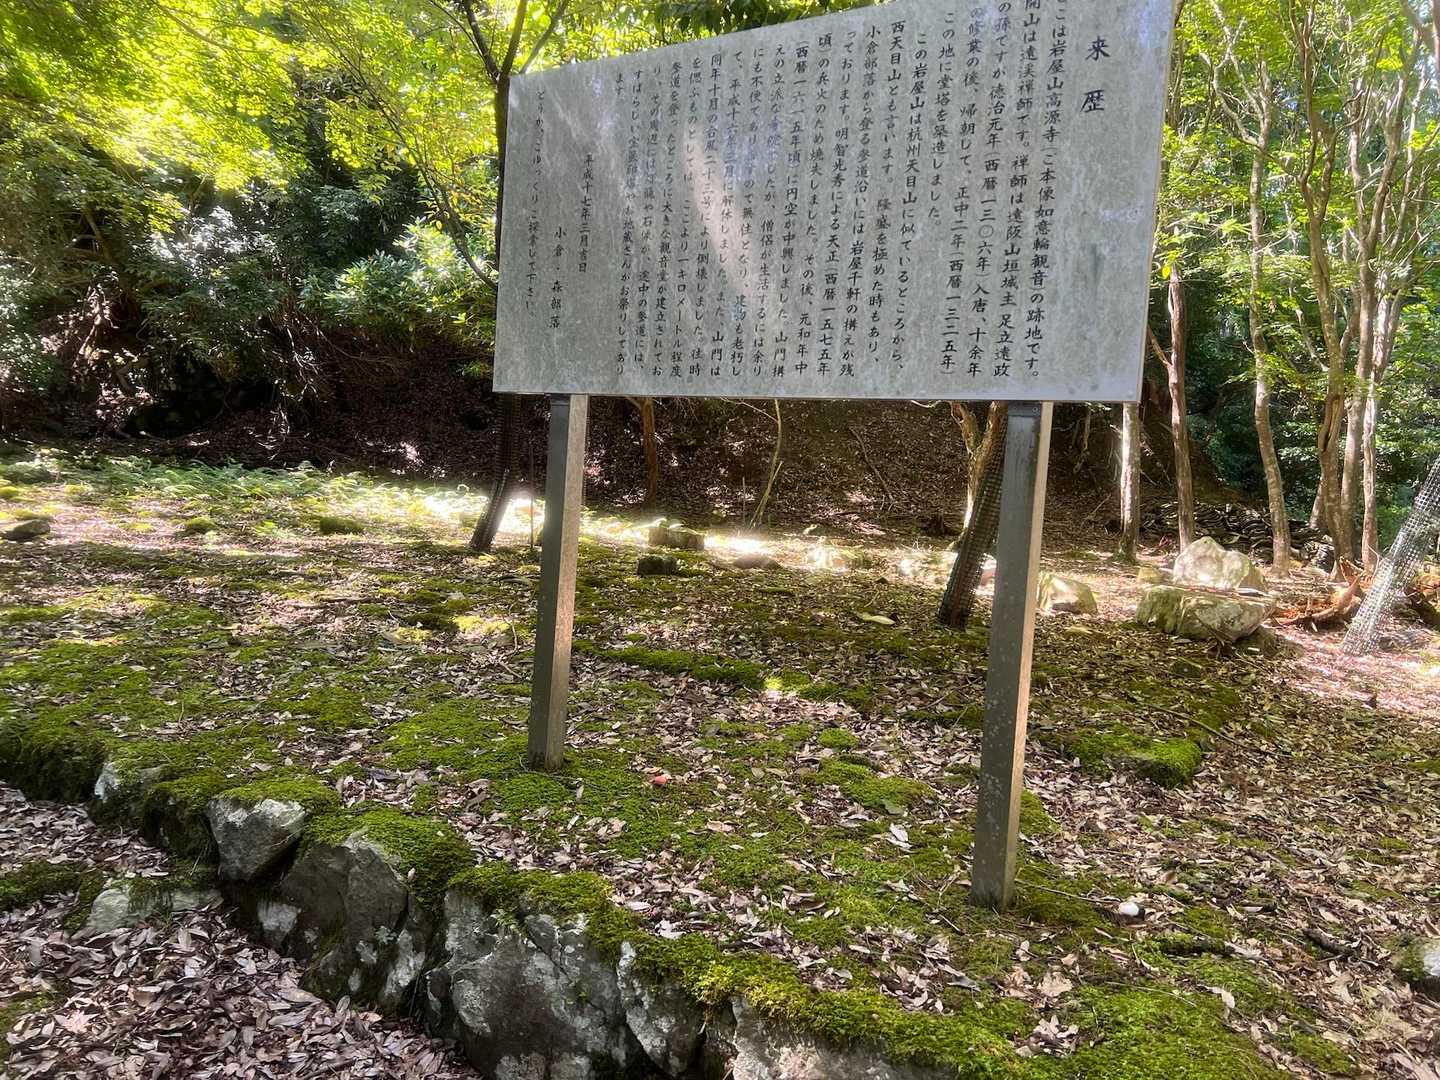 来歴
ここは岩屋山高源寺（ご本像如意輪観音の跡地です。
開山は遠渓禅師です。禅師は遠阪山垣城主、足立遠政
の孫ですが徳治元年（西暦一三〇六年）入唐、十余年
の修業の後、帰朝して、正中二年（西暦一三二五年）
この地に堂塔を築造しました。
この岩屋山は杭州天目山に似ているところから、
西天目山とも言います。隆盛を極めた時もあり、
小倉部落から登る参道沿いには岩屋千軒の構えが残
っております。明智光秀による天正（西暦一五七五年
頃の兵火のため焼失しました。その後、元和年中
（西暦一六一五年頃）に円空が中興しました。山門構
えの立派な でしたが、僧侶が生活するには余り
にも不便でありますので無住となり、建物も老朽し
て、平成十六年三月に解体しました。また、山門は
同年十月の台風二十三号により倒壊しました。往時
を偲ぶものとしては、ここより一キロメートル程度
参道を登ったところに大きな観音堂が建立されてお
り、その周辺には や石体が、途中の参道には、
すばらしい宝篋印塔やお地蔵さんがお祭りしており
ます。
平成十七年三月吉日
小倉・森部落
どうか、ごゆっくりご探索して下さい。